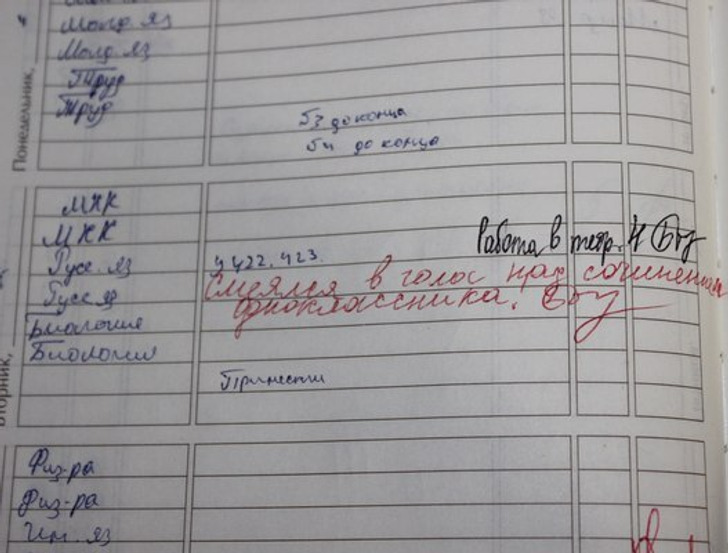 Молд. яз
Молд. яз
Труд
Труд
до конца
до конца
Понедельник,
МХК
МХК
Работа в тетр. 4
Русс. яз
422, 423.
Смеялся в голос над сочинением
Русс яз
одноклассника.
Биология
Биология
Вторник,
Принести
Физ-ра
Физ-ра
Ин. яз